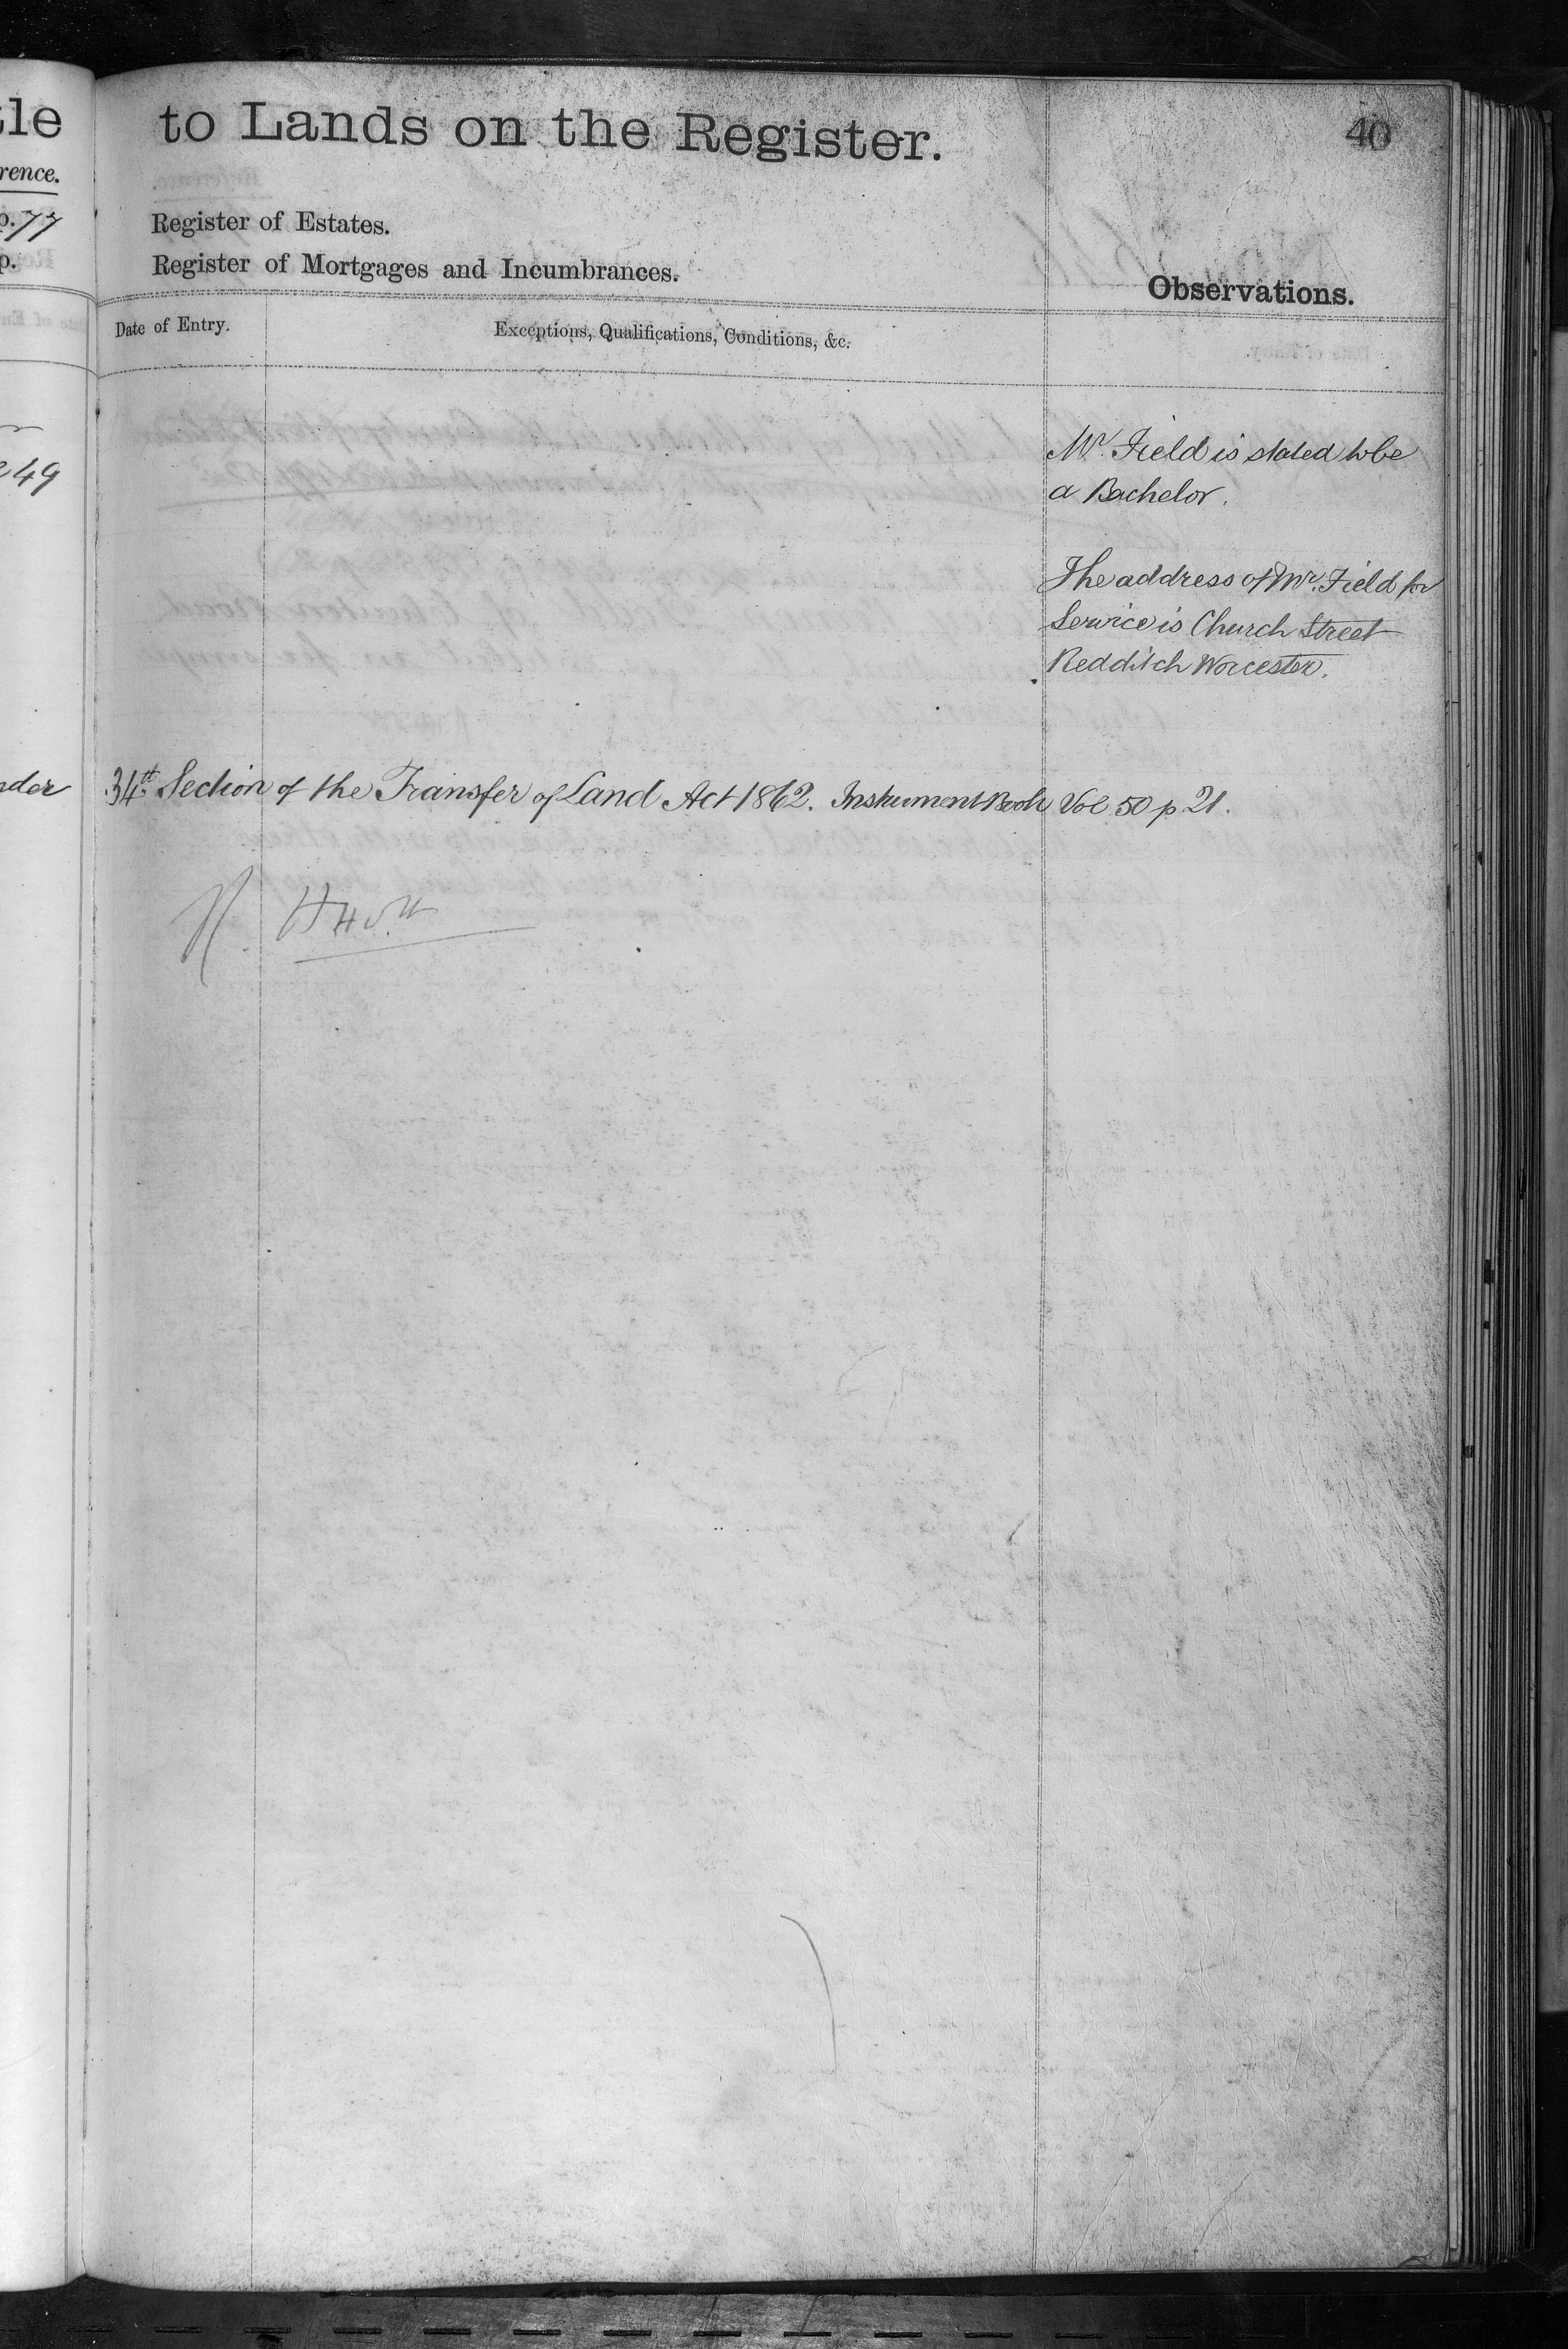 tle
rence.
p. 77
p.
249
nder
to Lands on the Register.
40
Register of Estates.
Register of Mortgages and Incumbrances.
Observations.
Date of Entry.
Exceptions, Qualifications, Conditions, &c.
Mr. Field is stated to be
a Bachelor.
The address of Mr. Field for
Service is Church Street
Redditch Worcester.
34th Section of the Transfer of Land Act 1862. Instrument Book Vol 50 p 21.